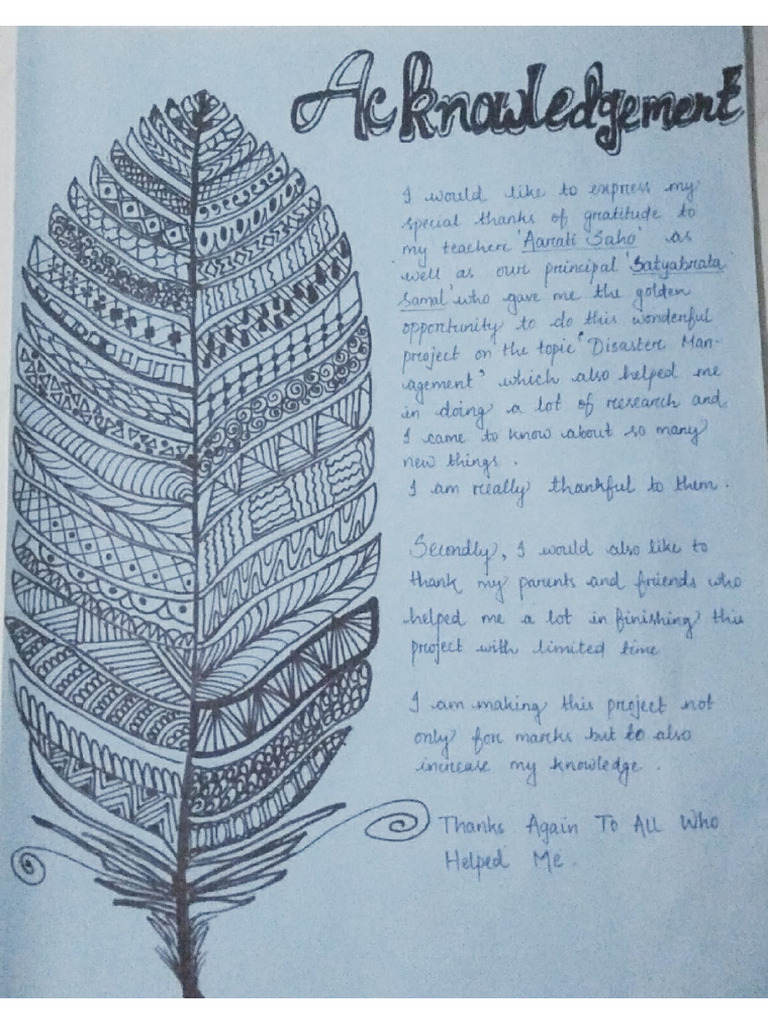 Acknowledgement
I would like to express my
special thanks of gratitude to
my teacher 'Aarati Saho' as
well as our principal 'Satyabrata
Samal' who gave me the golden
opportunity to do this wonderful
project on the topic "Disaster Man-
agement" which also helped me
in doing a lot of research and
I came to know about so many
new things.
I am really thankful to them.
Secondly, I would also like to
thank my parents and friends who
helped me a lot in finishing this
project with limited time
I am making this project not
only for marks but to also
increase my knowledge.
Thanks Again To All Who
Helped Me.